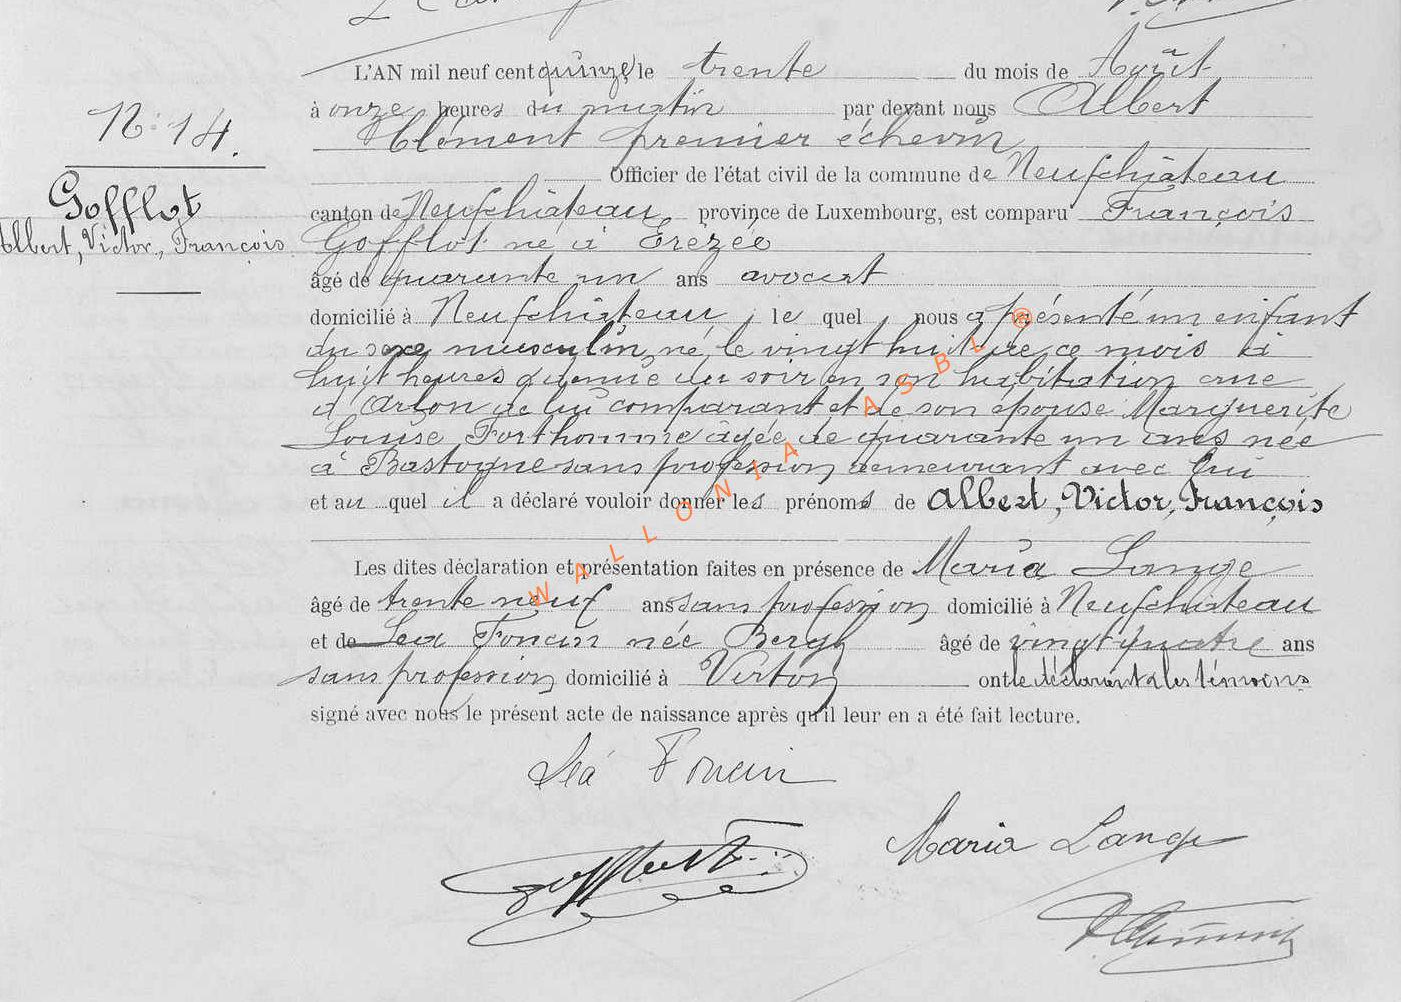 N: 14.
Gofflot
Albert, Victor, François
L'AN mil neuf cent quinze le trente du mois de Août
à onze heures du matin par devant nous Albert
Clément premier échevin
Officier de l'état civil de la commune de Neufchâteau
canton de Neufchâteau, province de Luxembourg, est comparu François
Gofflot né à Erezée
âgé de quarante un ans avocat
domicilié à Neufchâteau, le quel nous a présenté un enfant
du sexe masculin, né le vingt huit de ce mois à
huit heures du soir en son habitation rue
d'Arlon de lui comparant et de son épouse Marguerite
Louise Forthomme âgée de quarante un ans née
à Bastogne sans profession demeurant avec lui
et au quel il a déclaré vouloir donner les prénoms de Albert, Victor, François
Les dites déclaration et présentation faites en présence de Maria Lange
âgé de trente neuf ans sans profession domicilié à Neufchâteau
et de Léa Foncin née Bergh âgé de vingt quatre ans
sans profession domicilié à Virton ont le déclarant & les témoins
signé avec nous le présent acte de naissance après qu'il leur en a été fait lecture.
Léa Foncin
Maria Lange
Gofflot
A Clément
WALLONIA ASBL ®